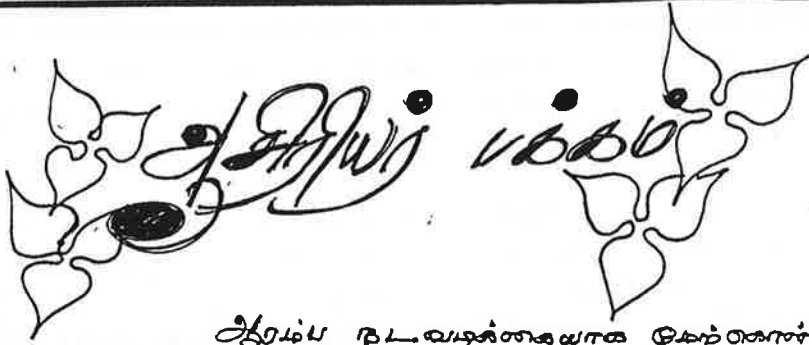 ஆசிரியர் பக்கம்
ஆரம்ப நடவடிக்கையாக மேற்கொள்